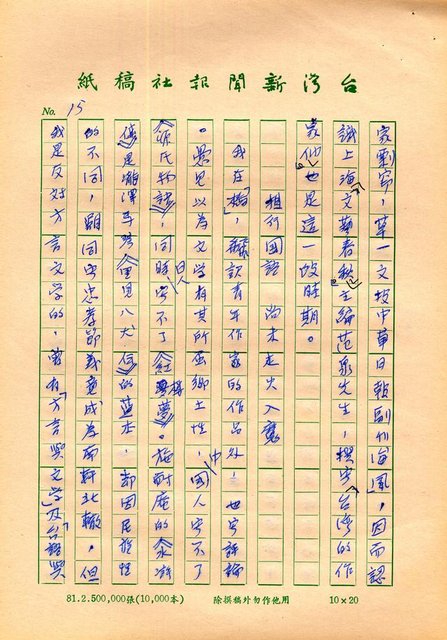 台灣新聞報社稿紙
No. 15
家劉富,草一文投中華日報副刊「海風」,因而認
識上海「文藝春秋」主編范泉先生,撰寫「台灣的作
家」也是這一時期。
推行國語 尚未走火入魔
我在「橋」,除談青年作家的作品外,也寫評論
。愚見以為文學有其所固鄉土性,中國人寫不了
《源氏物語》,同時日人寫不了《紅樓夢》。施耐庵的《水滸
傳》是瀧澤馬琴《里見八犬伝》的藍本,却因民族性
的不同,雖同寫忠孝節義竟成為南轅北轍。但
我是反對方言文學的,曾有「方言與文學」及「台語與
81.2.500,000張(10,000本) 除撰稿外勿作他用 10×20